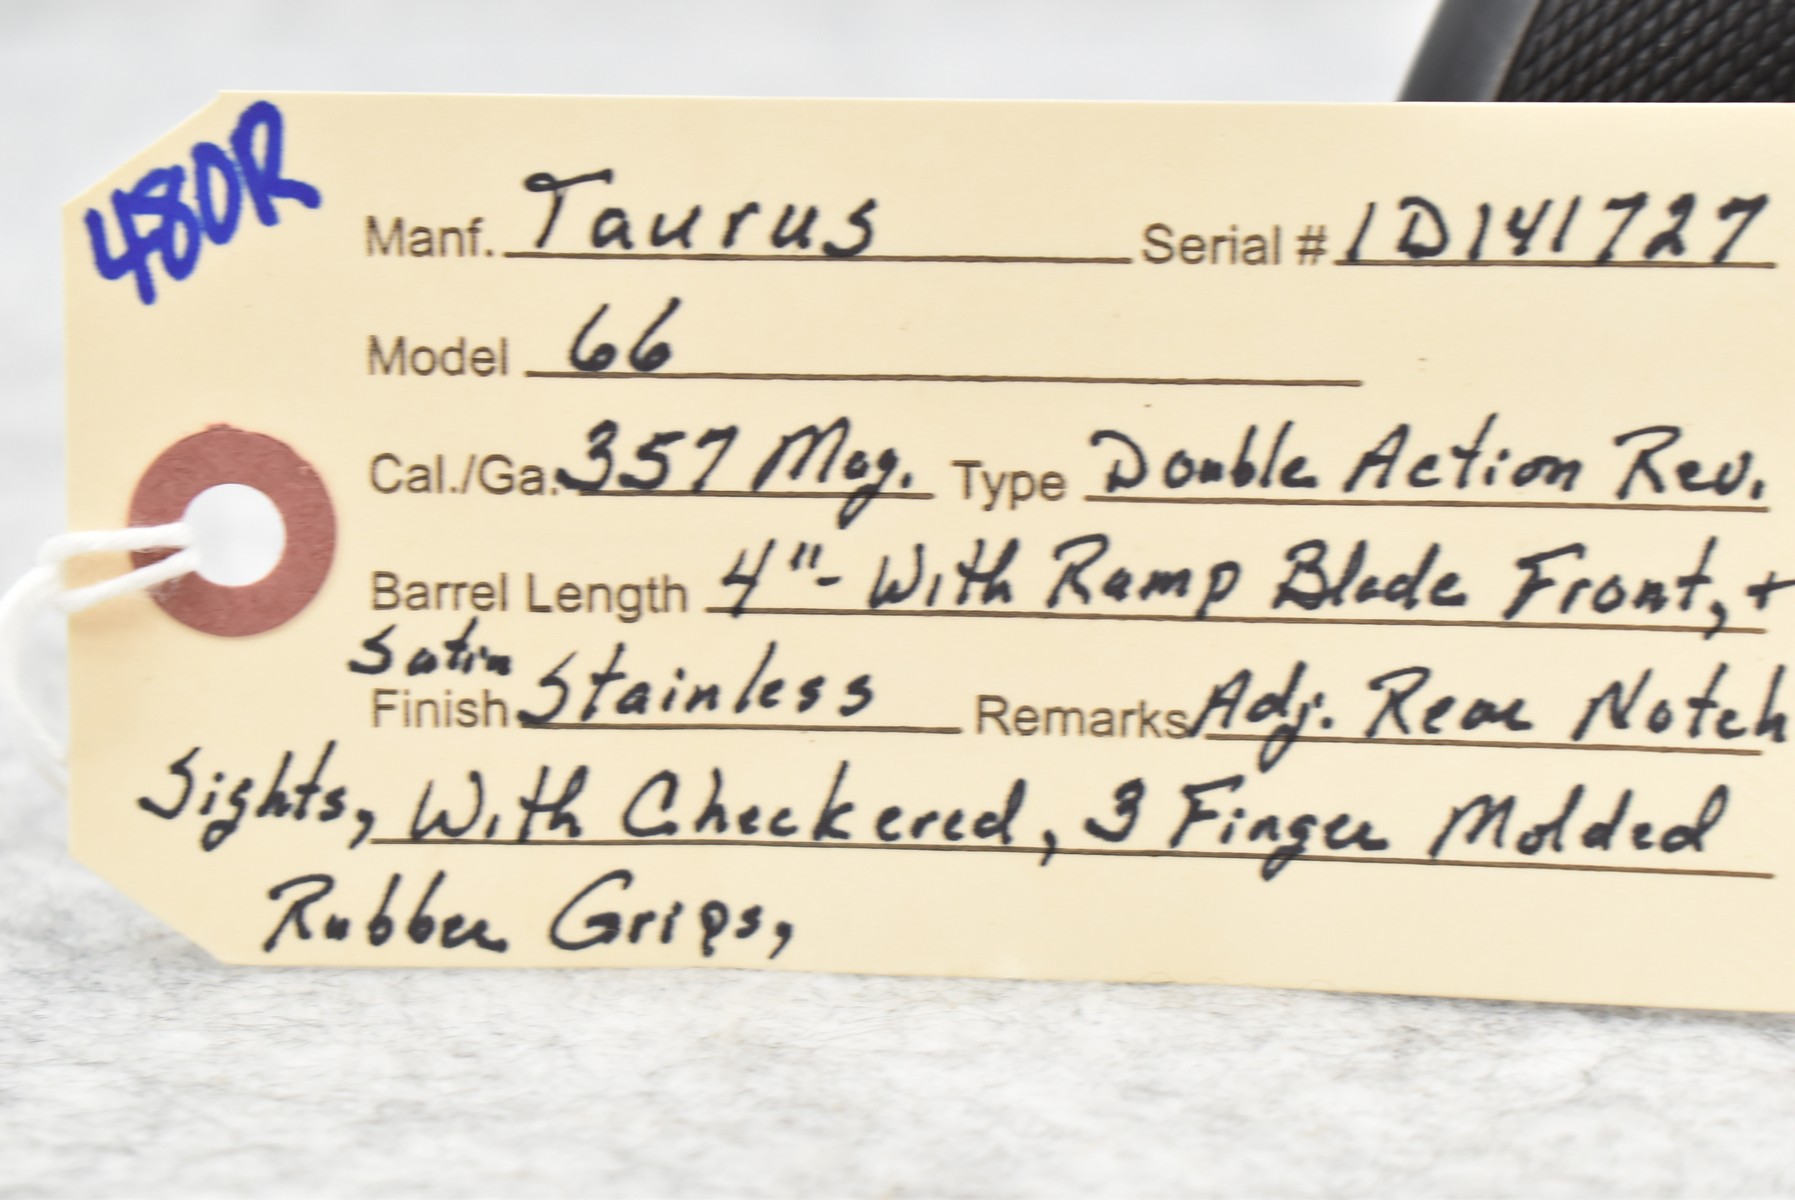 480R
Manf. Taurus Serial # 1D141727
Model 66
Cal./Ga. 357 Mag. Type Double Action Rev.
Barrel Length 4"- With Ramp Blade Front, +
Satin
Finish Stainless Remarks Adj. Rear Notch
Sights, With Checkered, 3 Finger Molded
Rubber Grips,